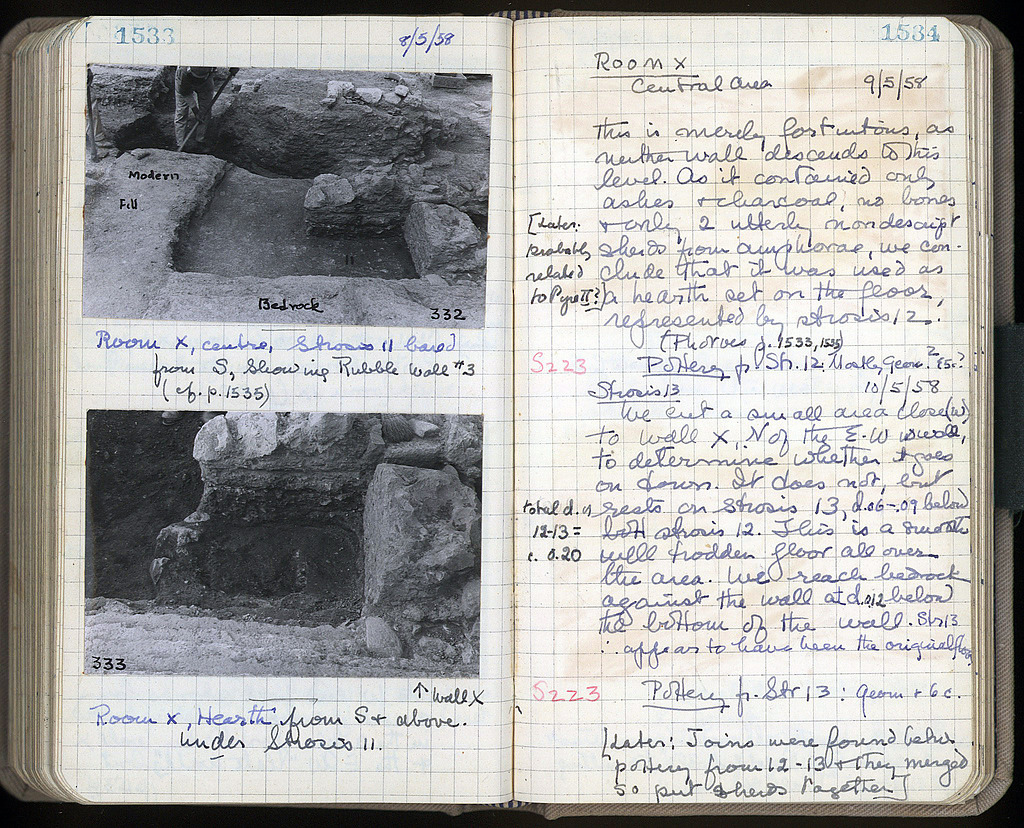 1533
8/5/58
Modern
Fill
11
Bedrock
332
Room X, centre, Strosis 11 bared
from S, showing Rubble Wall #3
(cf. p. 1535)
333
↑ Wall X
Room X, Hearth from S & above.
under Strosis 11.
1534
Room X
Central Area
9/5/58
This is merely fortuitous, as
neither wall descends to this
level. As it contained only
ashes & charcoal, no bones
& only 2 utterly nondescript
sherds from amphorae, we con-
clude that it was used as
a hearth set on the floor,
represented by strosis 12.
(Photos p. 1533, 1535)
[Later:
probably
related
to Pyre II?]
S223
Pottery fr. Str. 12: Mostly Geom? &5c.?
Strosis 13
10/5/58
We cut a small area close (W)
to wall X, N of the E-W wall,
to determine whether it goes
on down. It does not, but
rests on strosis 13, d. .06-.09 below
bott strosis 12. This is a smooth
well trodden floor all over
the area. We reach bedrock
against the wall at d. .012 below
the bottom of the wall. Str 13
∴ appears to have been the original floor.
total d. of
12-13 =
c. 0.20
S223
Pottery fr. Str 13: Geom + 6 c.
[Later: Joins were found betw.
pottery from 12-13 & they merged
so put sherds together]